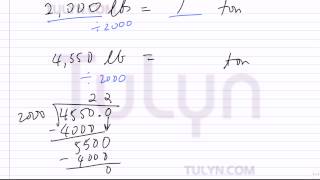 2,000 lbs = 1 ton
÷2000
4,550 lb = ton
÷ 2000
22
2000 4550.0
-4000
5500
-4000
0
TULYN
TULYN.COM